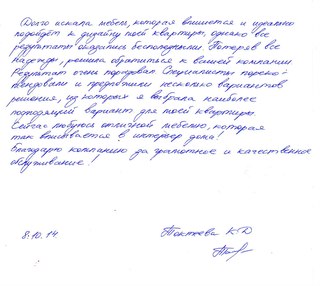 Долго искала мебель, которая впишется и идеально
подойдёт к дизайну моей квартиры, однако все
результаты оказались бесполезными. Потеряв все
надежды, решила обратиться к вашей компании
Результат очень порадовал. Специалисты
и предложили несколько вариантов
решения, из которых я выбрала наиболее
подходящий вариант для моей квартиры.
Сейчас любуюсь отличной мебелью, которая
так вписывается в интерьер дома!
Благодарю компанию за грамотное и качественное
обслуживание!
8.10.14. К.Д